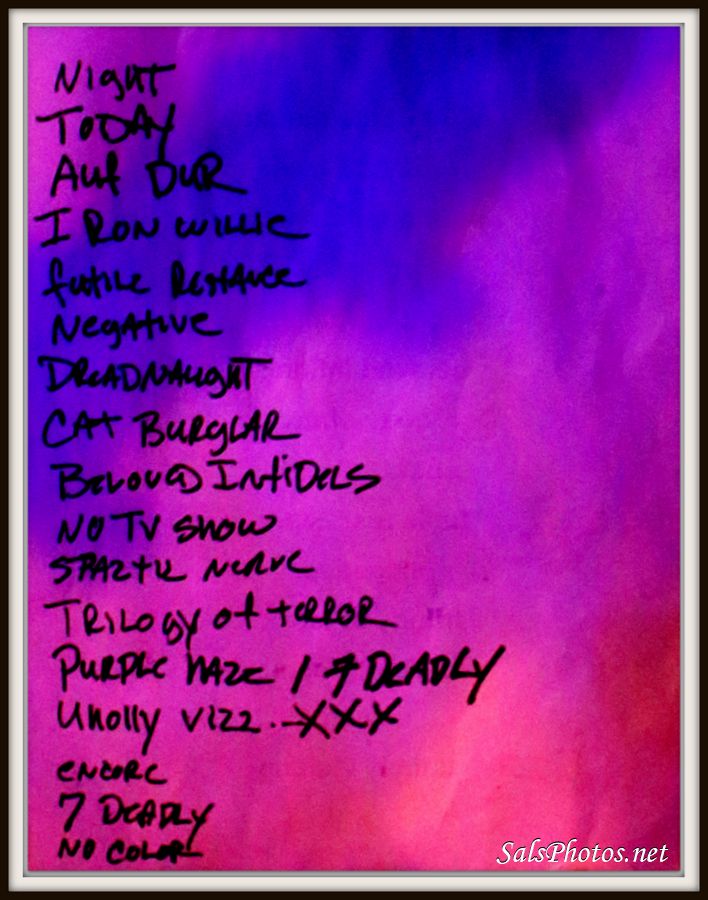 Night
TODAY
Auf DUR
IRON WILLIE
futile Restance
Negative
DREADNAUGHT
CAT BURGLAR
BELOVED INFIDELS
NO TV SHOW
SPAZTIC NERVE
TRILOGY of TERROR
PURPLE HAZE / 7 DEADLY
Unolly vizz. XXX
encore
7 DEADLY
NO COLOR
SalsPhotos.net